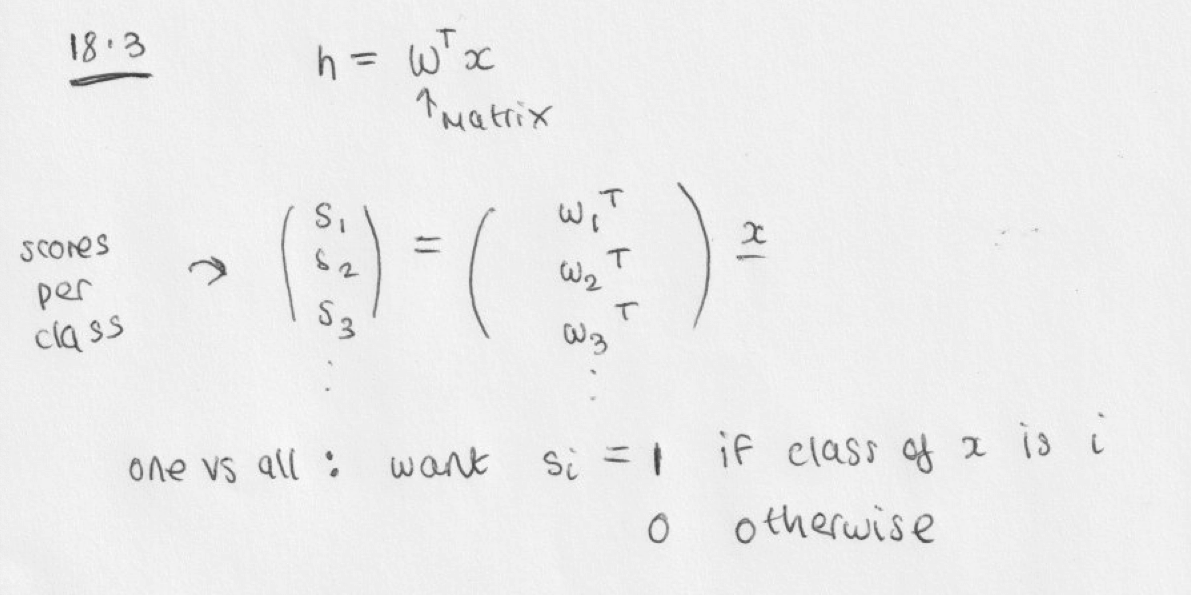 18.3
h = ωᵀx
↑ Matrix
scores per class → (s₁ s₂ s₃ ⋮) = (ω₁ᵀ ω₂ᵀ ω₃ᵀ ⋮) x
one vs all : want sᵢ = 1 if class of x is i
0 otherwise